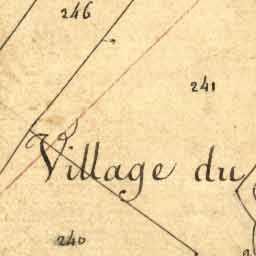 246
241
Village du
240